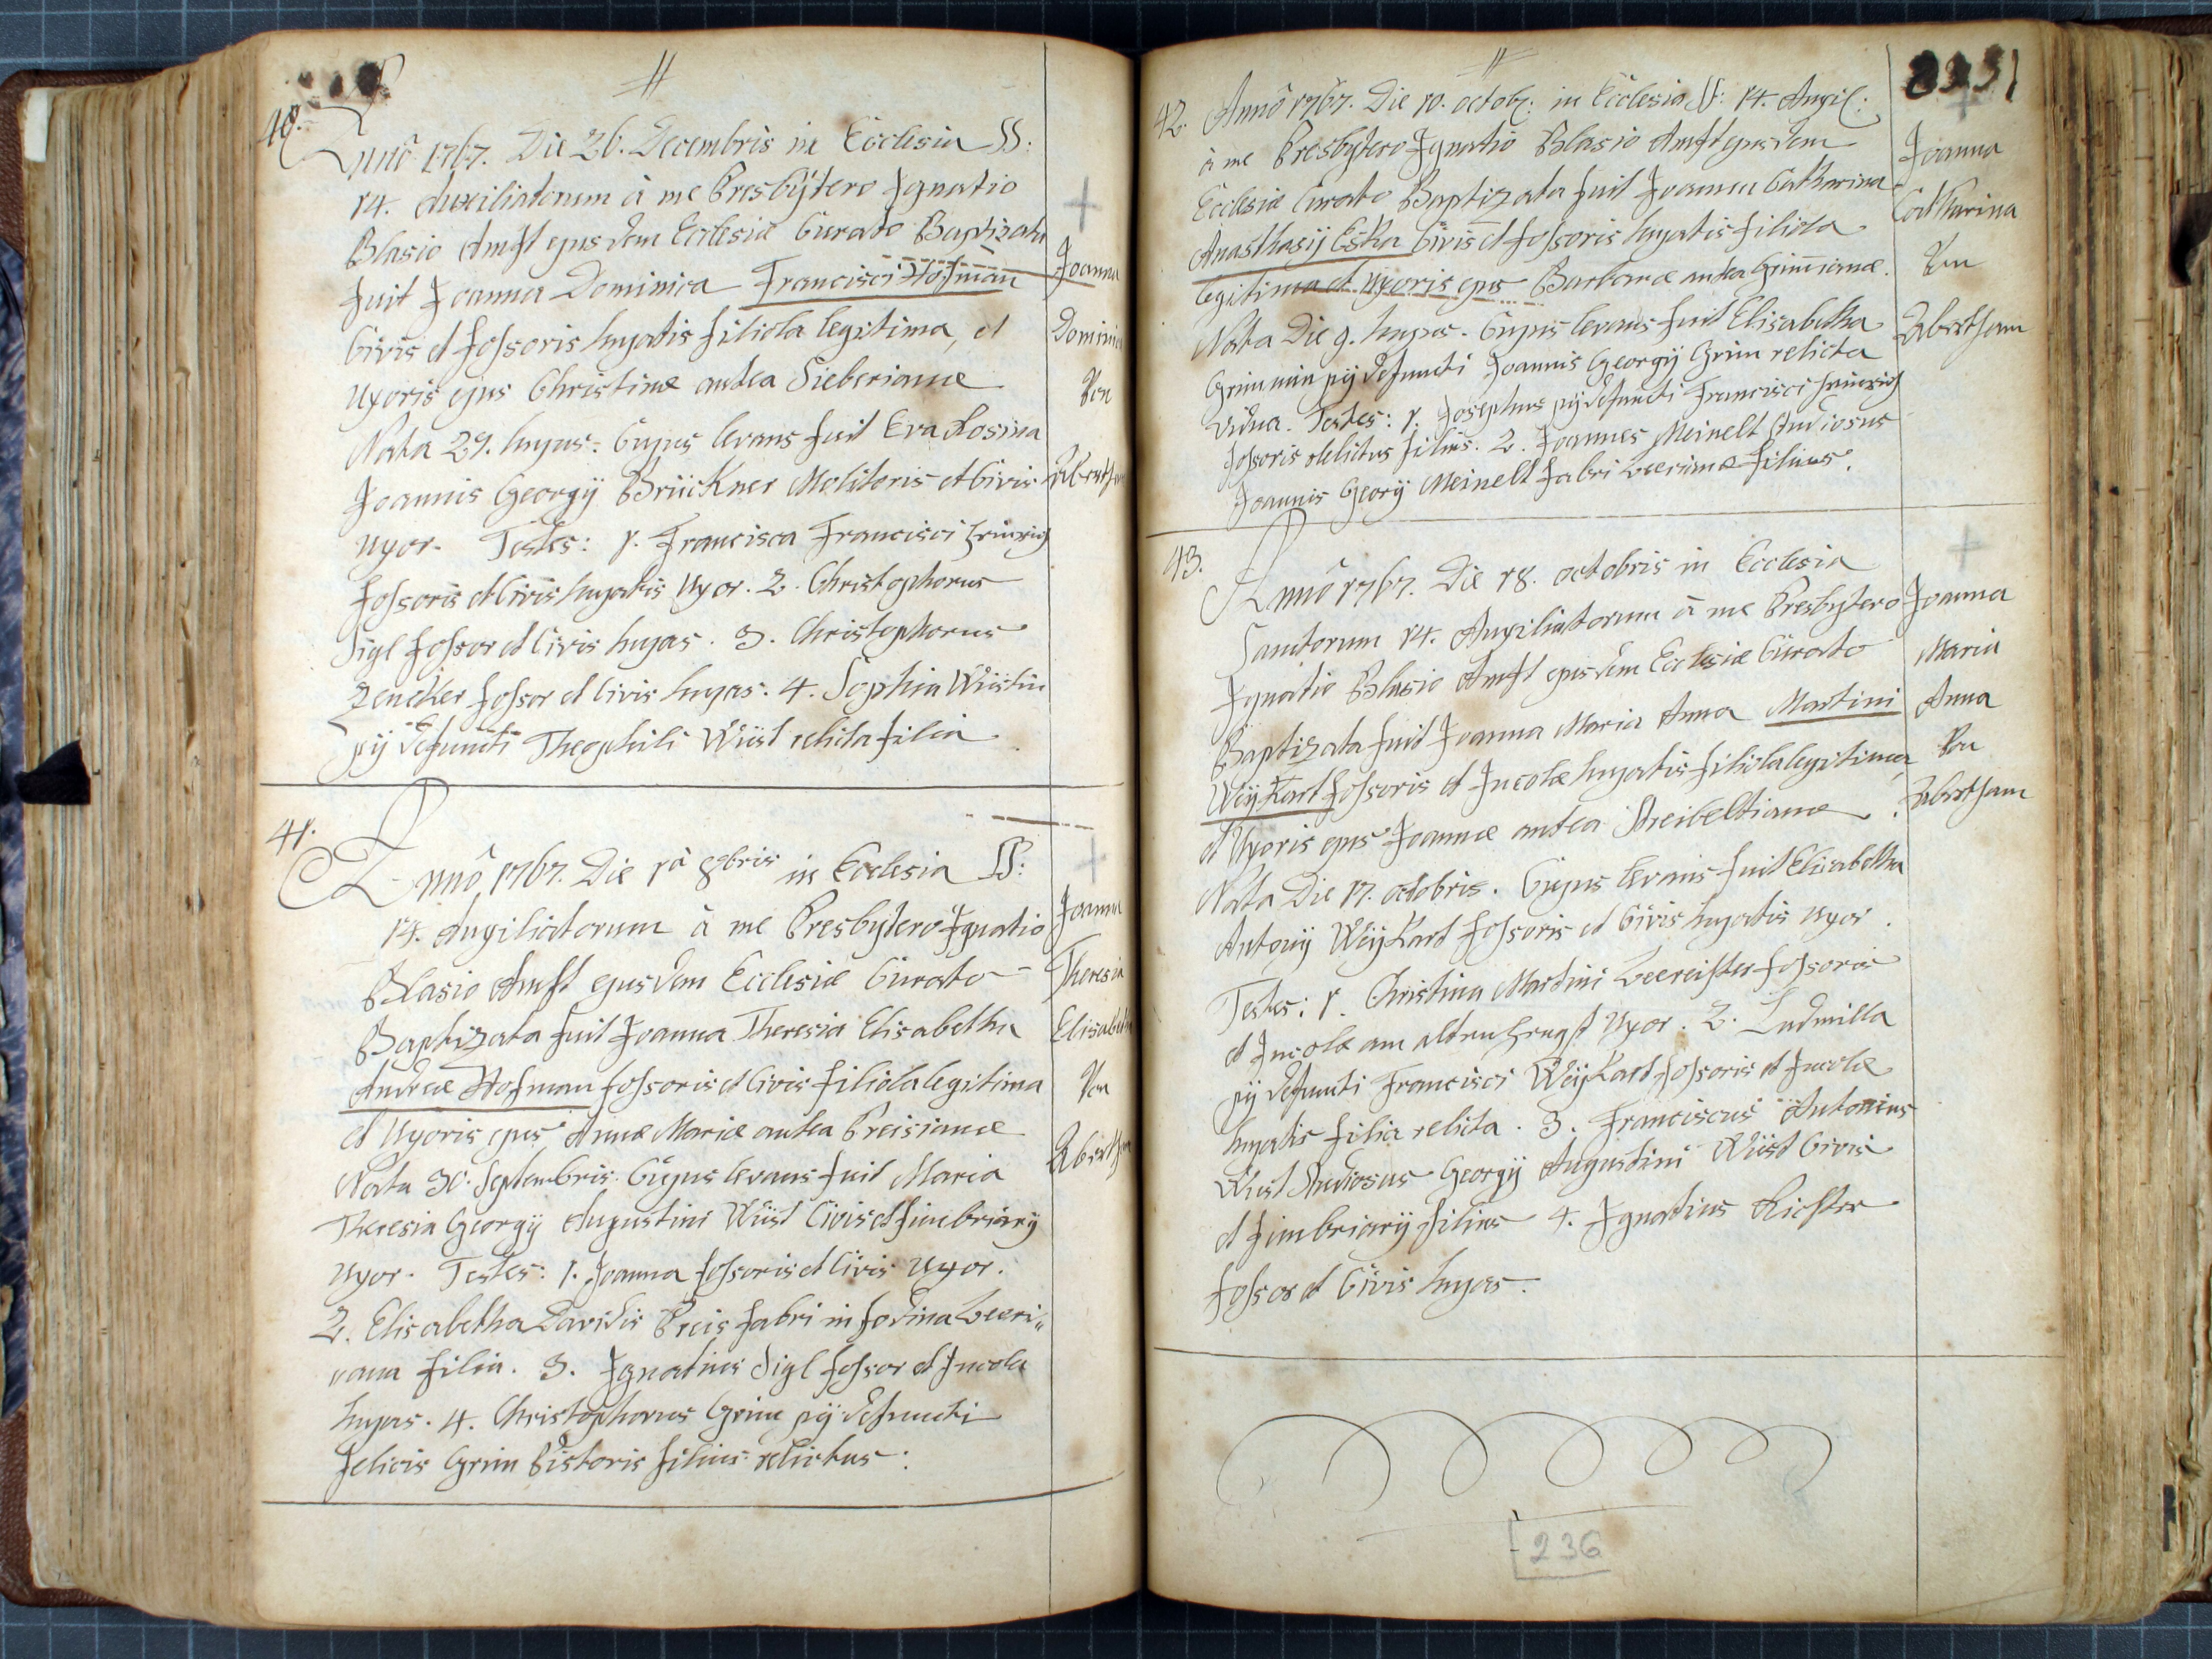 40.
Annô 1767. Die 26. Decembris in Ecclesia SS:
14. Auxiliatorum â me Presbÿtero Ignatio
Blasio Amst ejusdem Ecclesiæ Curato Baptizata
fuit Joanna Dominica Francisci Hofman
Civis et fossoris hujatis filiola legitima, et
Uxoris ejus Christinæ antea Sieberianæ
Nata 25. hujus. Cujus levans fuit Eva Rosina
Joannis Georgÿ Brückner Molitoris et Civis
uxor. Testes: 1. Francisca Francisci Heinrich
fossoris et Civis hujatis Uxor. 2. Christophorus
Sigl fossor et Civis hujas. 3. Christophorus
Zencker fossor et Civis hujas. 4. Sophia Wüstin
pÿ defuncti Theophili Wüst relicta filia
Joanna
Dominica
Von
Abertham
41.
Annô 1767. Die 1â 8bris in Ecclesia SS:
14. Auxiliatorum â me Presbytero Ignatio
Blasio Amst ejusdem Ecclesiæ Curato
Baptizata fuit Joanna Theresia Elisabetha
Andreæ Hofman fossoris et Civis filiola legitima
et Uxoris ejus Annæ Mariæ antea Preisianæ
Nata 30. Septembris. Cujus levans fuit Maria
Theresia Georgÿ Augustini Wüst Civis et fimbriarÿ
uxor. Testes: 1. Joanna fossoris et Civis Uxor.
2. Elisabetha Davidis Preis fabri in fodina
filia. 3. Ignatius Sigl fossor et Incola
hujas. 4. Christophorus Grim pÿ defuncti
Felicis Grim Pistoris filius relictus.
Joanna
Theresia
Elisabetha
Von
Abertham
42. Annô 1767. Die 10. octob: in Ecclesia SS: 14. Auxil:
â me Presbÿtero Ignatio Blasio Amst ejusdem
Ecclesiæ Curato Baptizata fuit Joanna Catharina
Anasthasij Civis et fossoris hujatis filiola
legitima et uxoris ejus Barbaræ antea Grimianæ.
Nata Die 9. hujus. Cujus levans fuit Elisabetha
Grimmin pÿ defuncti Joannis Georgÿ Grim relicta
vidua. Testes: 1. Josephus pÿ defuncti Francisci Heinrich
fossoris relictus filius. 2. Joannes Meinelt Studiosus
Joannis Georÿ Meinelt fabri filius.
Joanna
Catharina
Von
Abertham
43.
Annô 1767. Die 18. octobris in Ecclesia
Sanctorum 14. Auxiliatorum â me Presbytero
Ignatio Blasio Amst ejusdem Ecclesiæ Curato
Baptizata fuit Joanna Maria Anna Martini
Weÿkart fossoris et Incolæ hujatis filiola legitima
et Uxoris ejus Joannæ antea Streibeltianæ.
Nata Die 17. octobris. Cujus levans fuit Elisabetha
Antonÿ Weÿkart fossoris et Civis hujatis uxor.
Testes: 1. Christina Martini fossoris
et Incolæ am alten Uxor. 2. Ludmilla
pÿ defuncti Francisci Weÿkart fossoris et Incolæ
hujatis filia relicta. 3. Franciscus Antonius
Wüst Studiosus Georgÿ Augustini Wüst Civis
et fimbriarÿ filius 4. Ignatius Richter
fossor et Civis hujas.
Joanna
Maria
Anna
Von
Abertham
236